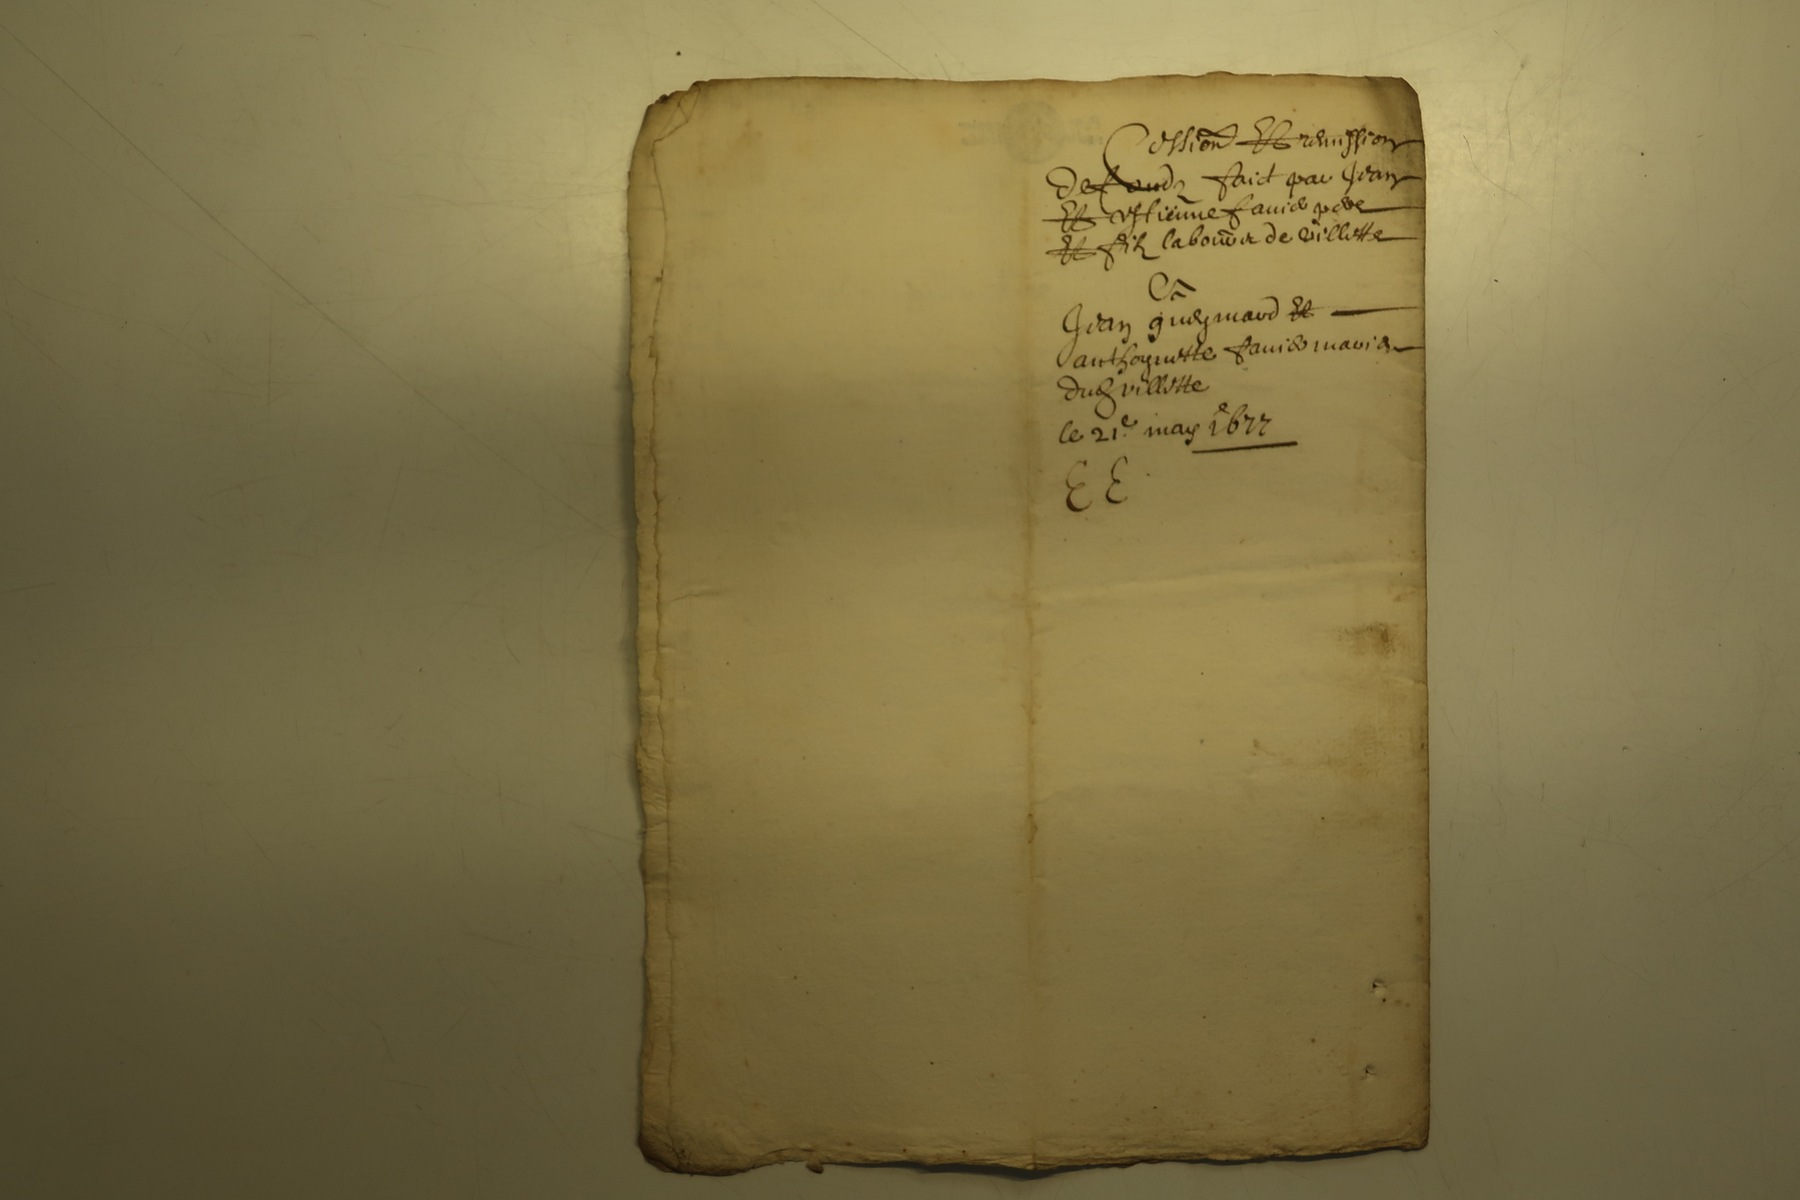 Cession Et remission
de fondz faict par Jean
Et estienne fauie pere
Et filz laboure de villette
A
Jean gueymard Et
anthoynette fauie marie
dud villette
le 21e may 1677
E E